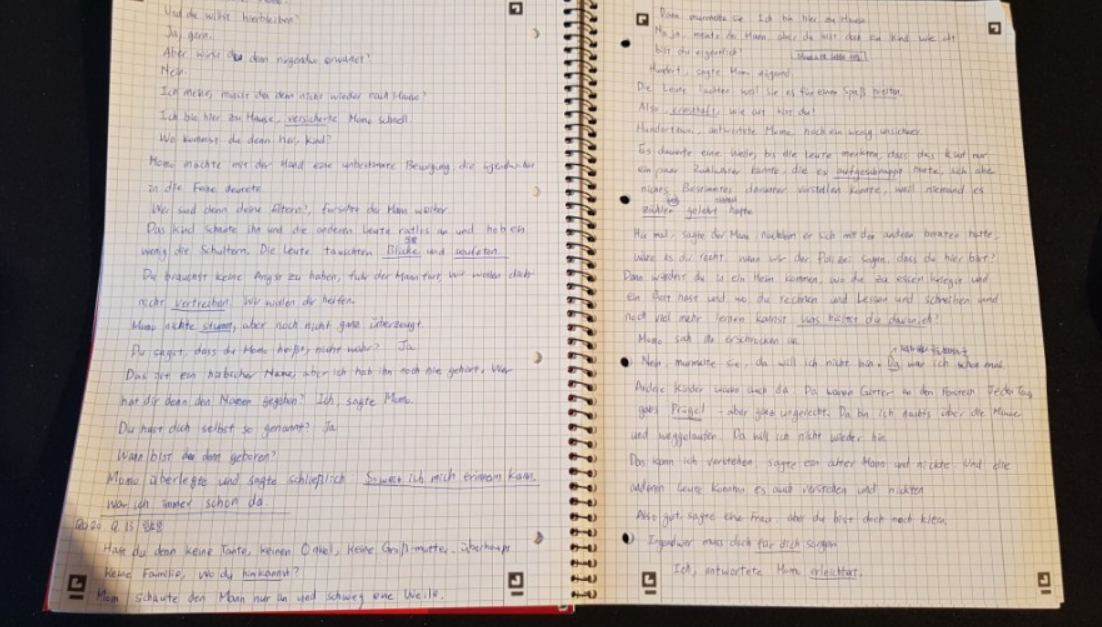 Und du willst hierbleiben?
Ja, gern.
Aber wirst du denn nirgendwo erwartet?
Nein.
Ich meine, musst du denn nicht wieder nach Hause?
Ich bin hier zu Hause, versicherte Momo schnell.
Wo kommst du denn her, Kind?
Momo machte mit der Hand eine unbestimmte Bewegung, die irgendwohin
in die Ferne deutete.
Wer sind denn deine Eltern?, forschte der Mann weiter
Das Kind schaute ihn und die anderen Leute ratlos an und hob ein
wenig die Schultern. Die Leute tauschten Blicke und seufzten.
Du brauchst keine Angst zu haben, fuhr der Mann fort, wir wollen dich
nicht vertreiben. Wir wollen dir helfen.
Momo nickte stumm, aber noch nicht ganz überzeugt.
Du sagst, dass du Momo heißt, nicht wahr? Ja
Das ist ein hübscher Name, aber ich hab ihn noch nie gehört. Wer
hat dir denn den Namen gegeben? Ich, sagte Momo.
Du hast dich selbst so genannt? Ja
Wann bist du denn geboren?
Momo überlegte und sagte schließlich: Soweit ich mich erinnern kann,
war ich immer schon da.
Hast du denn keine Tante, keinen Onkel, keine Großmutter, überhaupt
keine Familie, wo du hinkannst?
Momo schaute den Mann nur an und schwieg eine Weile.
Dann murmelte sie: Ich bin hier zu Hause
Na ja, meinte der Mann, aber du bist doch ein Kind wie alt
bist du eigentlich?
Hundert, sagte Momo zögernd.
Die Leute lachten, weil sie es für einen Spaß hielten.
Also, ernsthaft, wie alt bist du?
Hundertzwei, antwortete Momo, noch ein wenig unsicherer.
Es dauerte eine Weile, bis die Leute merkten, dass das Kind nur
ein paar Zahlwörter kannte, die es aufgeschnappt hatte, sich aber
nichts Bestimmtes darunter vorstellen konnte, weil niemand es
zählen gelehrt hatte
Hör mal, sagte der Mann, nachdem er sich mit den anderen beraten hatte,
wäre es dir recht, wenn wir der Polizei sagen, dass du hier bist?
Dann würdest du in ein Heim kommen, wo du zu essen kriegst und
ein Bett hast und wo du rechnen und lesen und schreiben und
noch viel mehr lernen kannst. Was hältst du davon, eh?
Momo sah ihn erschrocken an.
Nein, murmelte sie, da will ich nicht hin. Da war ich schon mal.
Andere Kinder waren auch da. Da waren Gitter an den Fenstern. Jeden Tag
gab's Prügel - aber ganz ungerecht. Da bin ich nachts über die Mauer
und weggelaufen. Da will ich nicht wieder hin
Das kann ich verstehen, sagte ein alter Mann und nickte. Und die
anderen Leute konnten es auch verstehen und nickten
Also gut, sagte eine Frau, aber du bist doch noch klein.
Irgendwer muss doch für dich sorgen
Ich, antwortete Momo erleichtert.